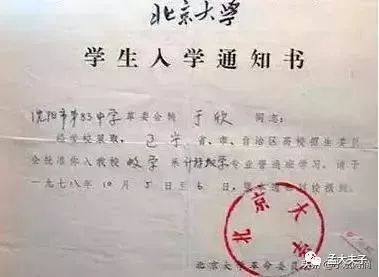 北京大学
学生入学通知书
沈阳市第83中学革委会转 于欣 同志：
经学校录取，辽宁省、市、自治区高校招生委员
会批准你入我校 数学 系计算数学专业普通班学习。请于
一九七八年10月5日至6日，凭本通知到校报到。
北京大学
北京大学革命委员会
孟大夫子